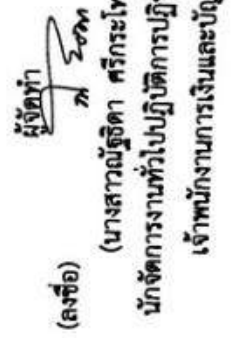 ผู้จัดทำ
(ลงชื่อ)
(นางสาวณัฐธิดา ศรีกระโท
นักจัดการงานทั่วไปปฏิบัติการปฏิ
เจ้าพนักงานการเงินและบัญ